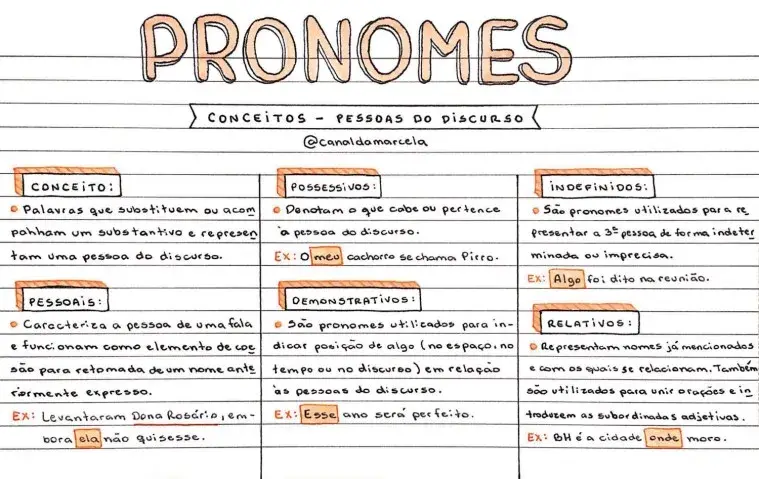 PRONOMES
CONCEITOS - PESSOAS DO DISCURSO
@canaldamarcela
CONCEITO:
Palavras que substituem ou acom
panham um substantivo e represen
tam uma pessoa do discurso.
PESSOAIS:
Caracteriza a pessoa de uma fala
e funcionam como elemento de coe
são para retomada de um nome ante
riormente expresso.
EX: Levantaram Dona Rosário, em-
bora ela não quisesse.
POSSESSIVOS:
Denotam o que cabe ou pertence
à pessoa do discurso.
EX: O meu cachorro se chama Pirro.
DEMONSTRATIVOS:
São pronomes utilizados para in-
dicar posição de algo (no espaço, no
tempo ou no discurso) em relação
às pessoas do discurso.
EX: Esse ano será perfeito.
INDEFINIDOS:
São pronomes utilizados para re
presentar a 3ª pessoa de forma indeter
minada ou imprecisa.
EX: Algo foi dito na reunião.
RELATIVOS:
Representam nomes já mencionados
e com os quais se relacionam. Também
são utilizados para unir orações e in
trodozem as subordinadas adjetivas.
EX: BH é a cidade onde moro.